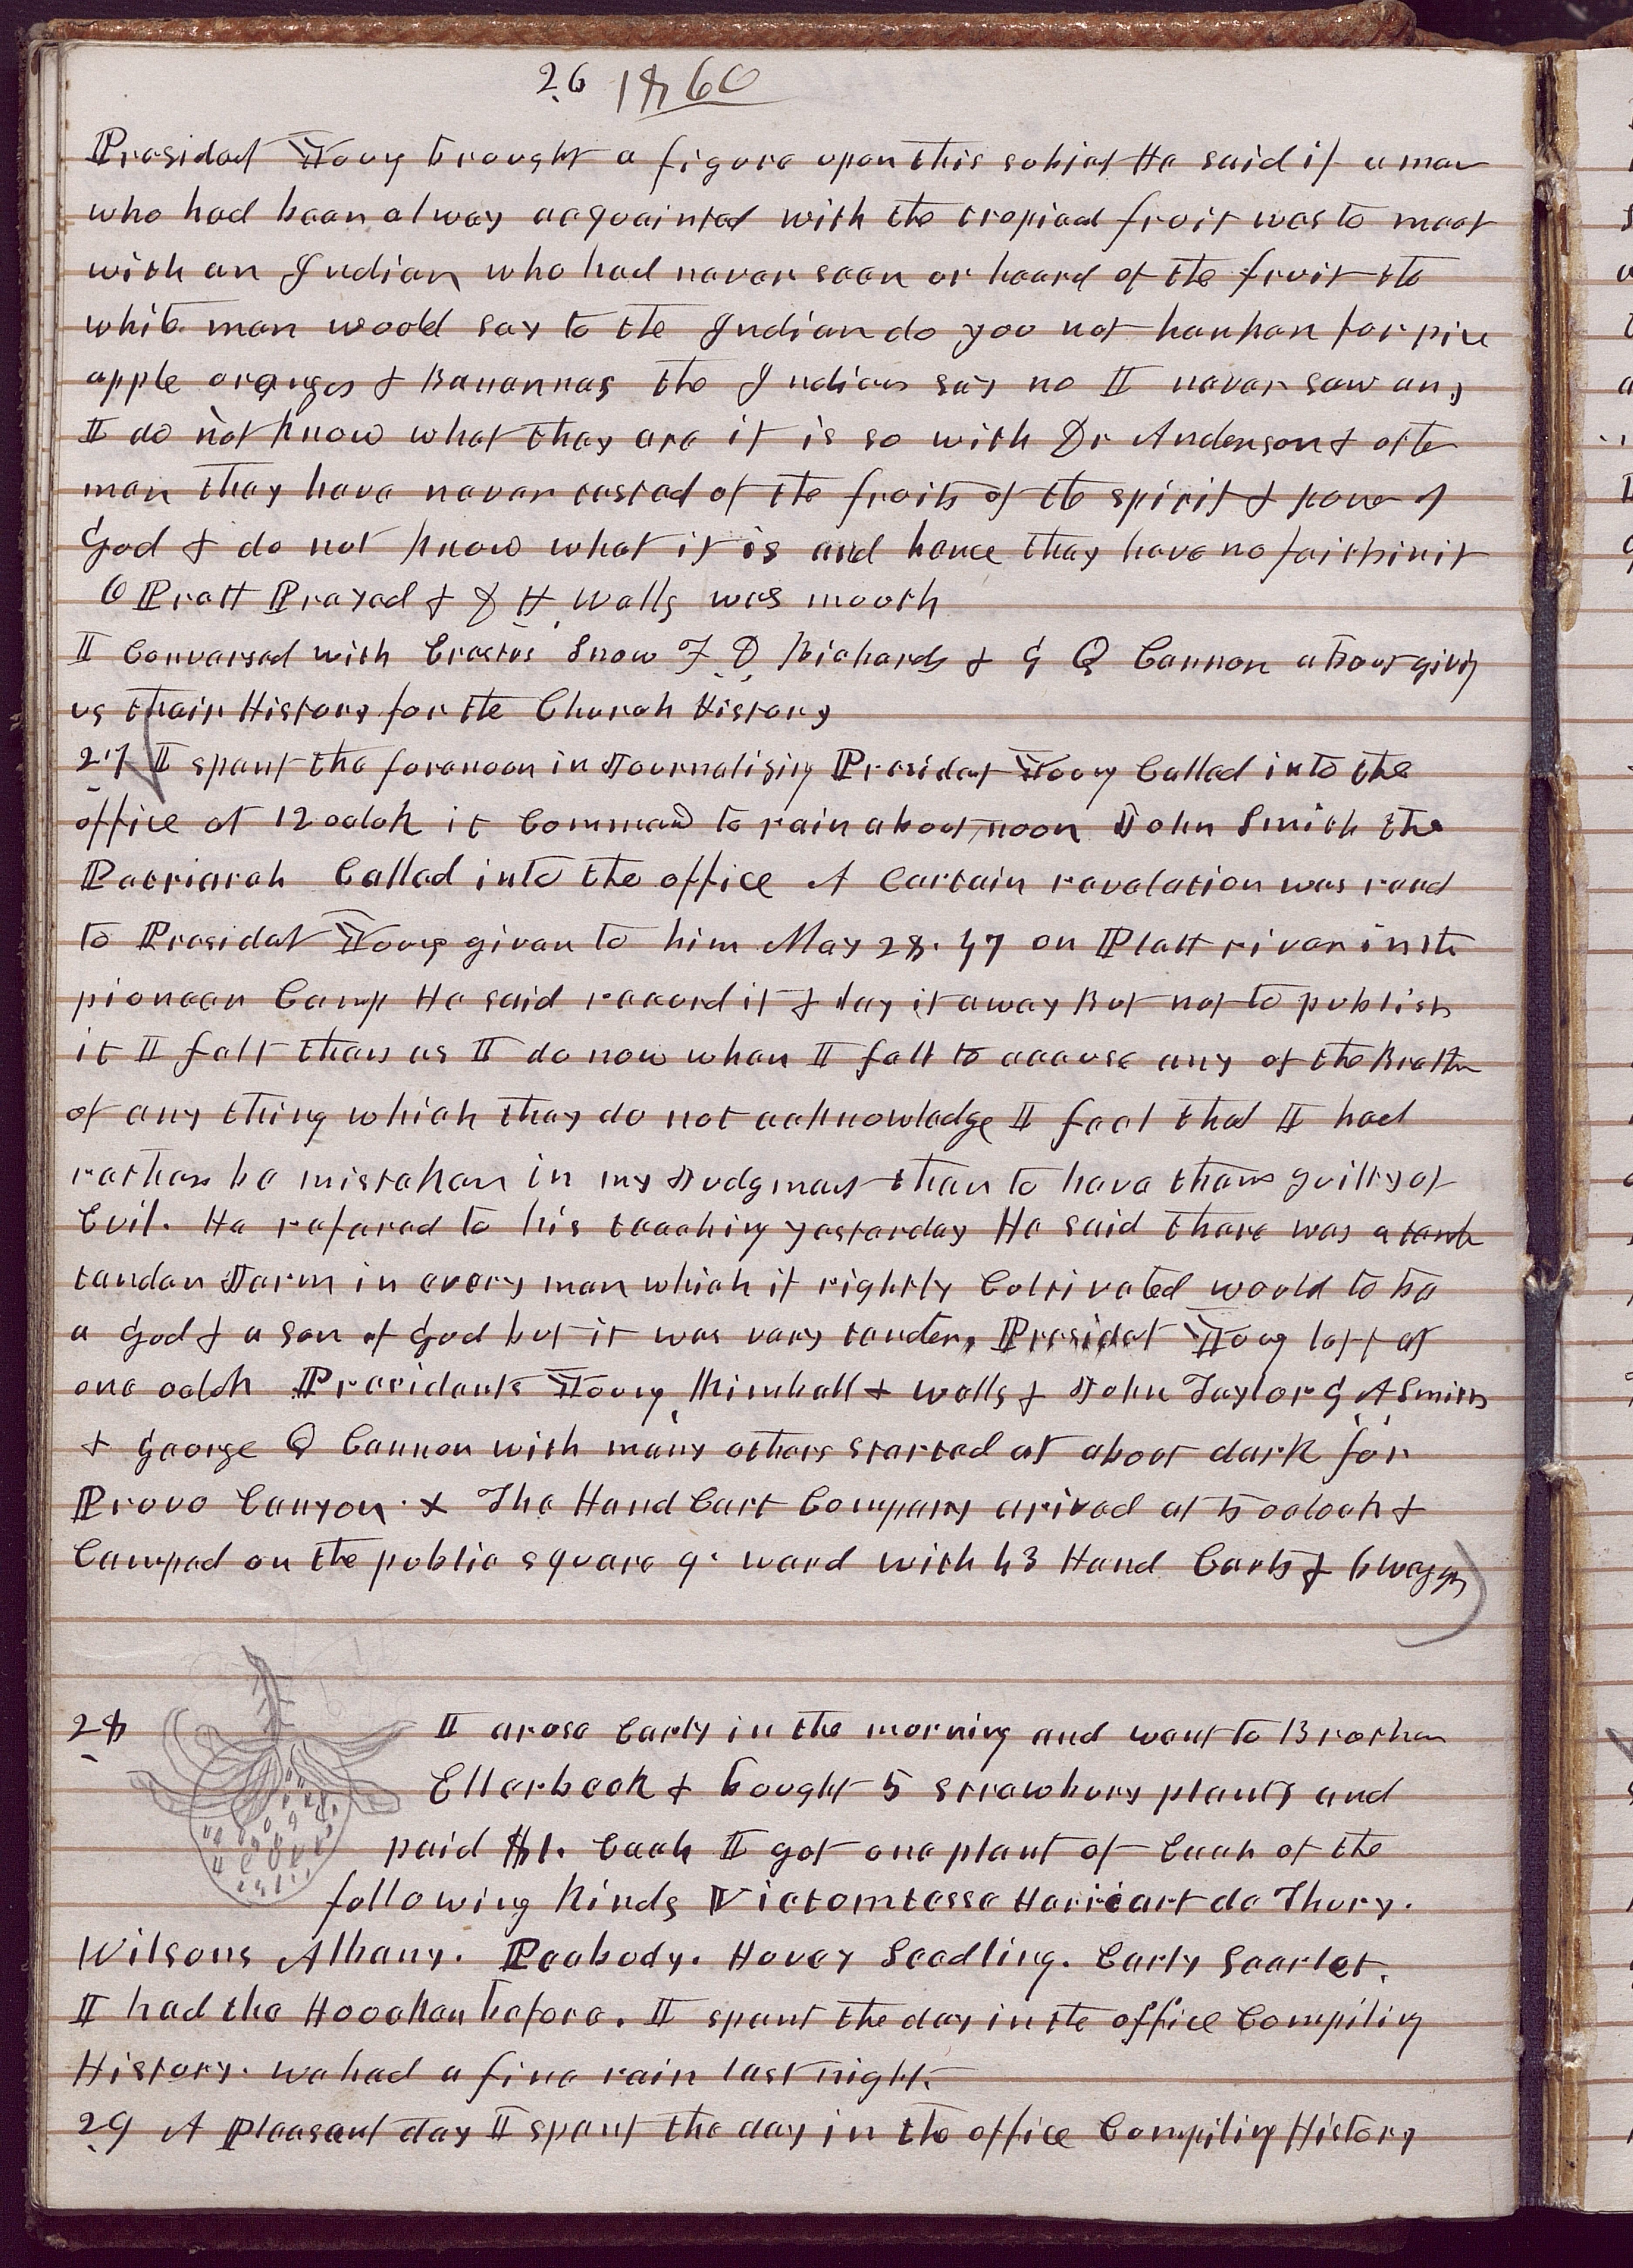 26 1860
Presidet Young brought a figure upon this subject He said if a man
who had been always acquainted with the tropical fruit was to meet
with an Indian who had never seen or heard of the fruit the
white man would say to the Indian do you not hanker for pine
apple oranges & Banannas the Indian say no I never saw any
I do not know what they are it is so with Dr Anderson & other
men they have never tasted of the fruits of the spirit & power of
God & do not know what it is and hence they have no faith in it
O Pratt Prayed & D H Wells was mouth
I Conversed with Erastus Snow F D Richards & G Q Cannon about giving
us their History for the Church History
27 I spent the forenoon in Journalizing Presidet Young Called into the
office at 12 oclok it Commencd to rain about noon John Smith the
Patriarch Called into the office A Certain revelation was read
to Presidet Young given to him May 28. 47 on Platt river in the
pioneer Camp He said record it & lay it away But not to publish
it I felt then as I do now when I felt to accuse any of the Brethr
of any thing which they do not acknowledge I feel that I had
rather be mistaken in my Judgment than to have them guilty of
Evil. He refered to his teaching yesterday He said there was a
tender Jerm in every man which if rightly Cultivated would to be
a God & a son of God but it was very tender, Presidet Young left at
one oclok Presidents Young Kimball & Wells & John Taylor G A Smith
& George Q Cannon with many others started at about dark for
Provo Canyon. X The Hand Cart Company arived at 5 oclock &
Camped on the public square 9. ward with 43 Hand Carts & 6 waggs
28 I arose Early in the morning and went to Brother
Ellerbeck & bought 5 strawbury plants and
paid $1. Each I got one plant of Each of the
following Kinds Victomtesse Harricart de Thury.
Wilsons Albany. Peabody. Hovey Seedling. Early Scarlet.
I had the Hooker before. I spent the day in the office Compiling
History. we had a fine rain last night.
29 A Pleasant day I spent the day in the office Compiling History